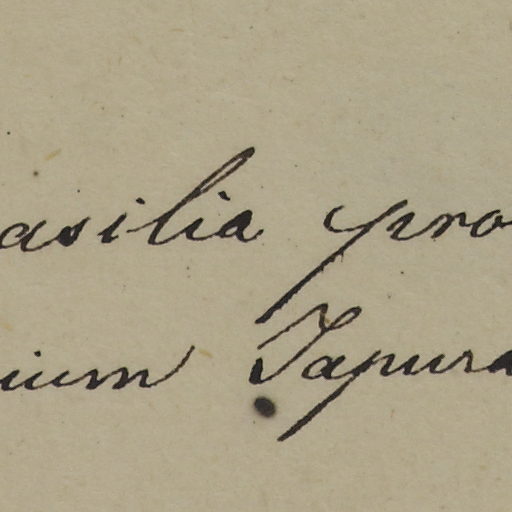 asilia pro
ium Japura